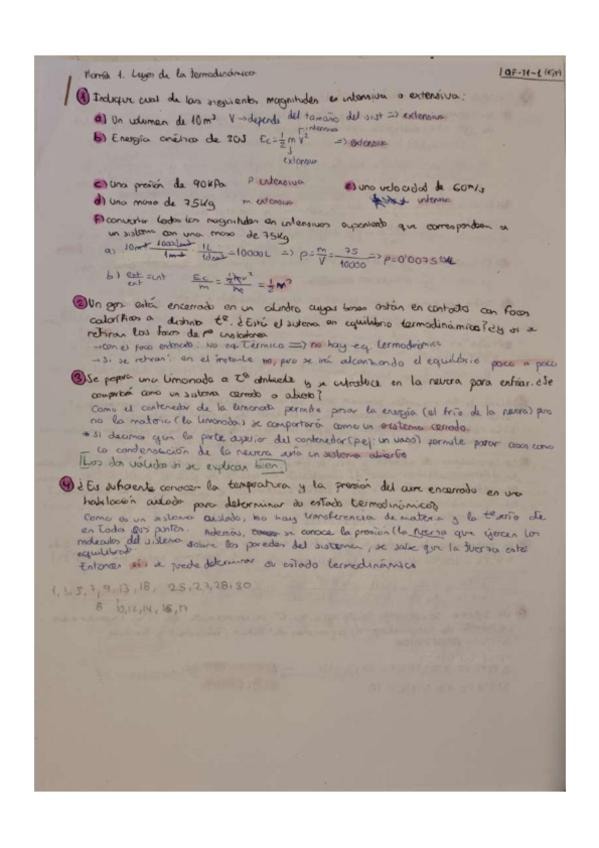 Tema 1. Leyes de la termodinámica
1 Indique cual de las siguientes magnitudes es intensiva o extensiva:
a) Un volumen de 10m³ V → depende del tamaño del sist ⇒ extensiva
b) Energía cinética de 30J Ec = 1/2 m v² ⇒ extensiva
intensiva
extensiva
c) Una presión de 90kPa P intensiva e) una velocidad de 60m/s
d) Una masa de 75kg m extensiva intensiva
f) convertir todas las magnitudes en intensivas suponiendo que corresponden a
un sistema con una masa de 75kg
a) 10m³ = 10000L ⇒ ρ = m/V = 75/10000 ⇒ ρ = 0'0075
b) ext/ext = int Ec/m = = 1/2 v²
2 Un gas está encerrado en un cilindro cuyas bases están en contacto con focos
caloríficos a distinta tª. ¿Está el sistema en equilibrio termodinámico? ¿Y si se
retiran los focos
→ con el foco no eq térmico ⇒ no hay eq. termodinámico
→ Si se retiran: en el instante no, pero se irá alcanzando el equilibrio poco a poco
3 Se prepara una limonada a Tª ambiente y se introduce en la nevera para enfriar. ¿Se
comportará como un sistema cerrado o abierto?
Como el contenedor de la limonada permite pasar la energía (el frío de la nevera) pero
no la materia (la limonada) se comportará como un sistema cerrado.
* Si decimos que la parte superior del contenedor (pej: un vaso) permite pasar cosas como
la condensación de la nevera sería un sistema abierto
Los dos válidos si se explican bien
4 ¿Es suficiente conocer la temperatura y la presión del aire encerrado en una
habitación aislada para determinar su estado termodinámico?
Como es un sistema aislado, no hay transferencia de materia y la tª sería cte
en todos sus puntos. Además, se conoce la presión (la fuerza que ejercen las
moléculas del sistema sobre las paredes del sistema), se sabe que la fuerza está
equilibrada.
Entonces si se puede determinar su estado termodinámico
1, 3, 5, 7, 9, 13, 18, 25, 27, 28, 30
8 10, 12, 14, 16, 17